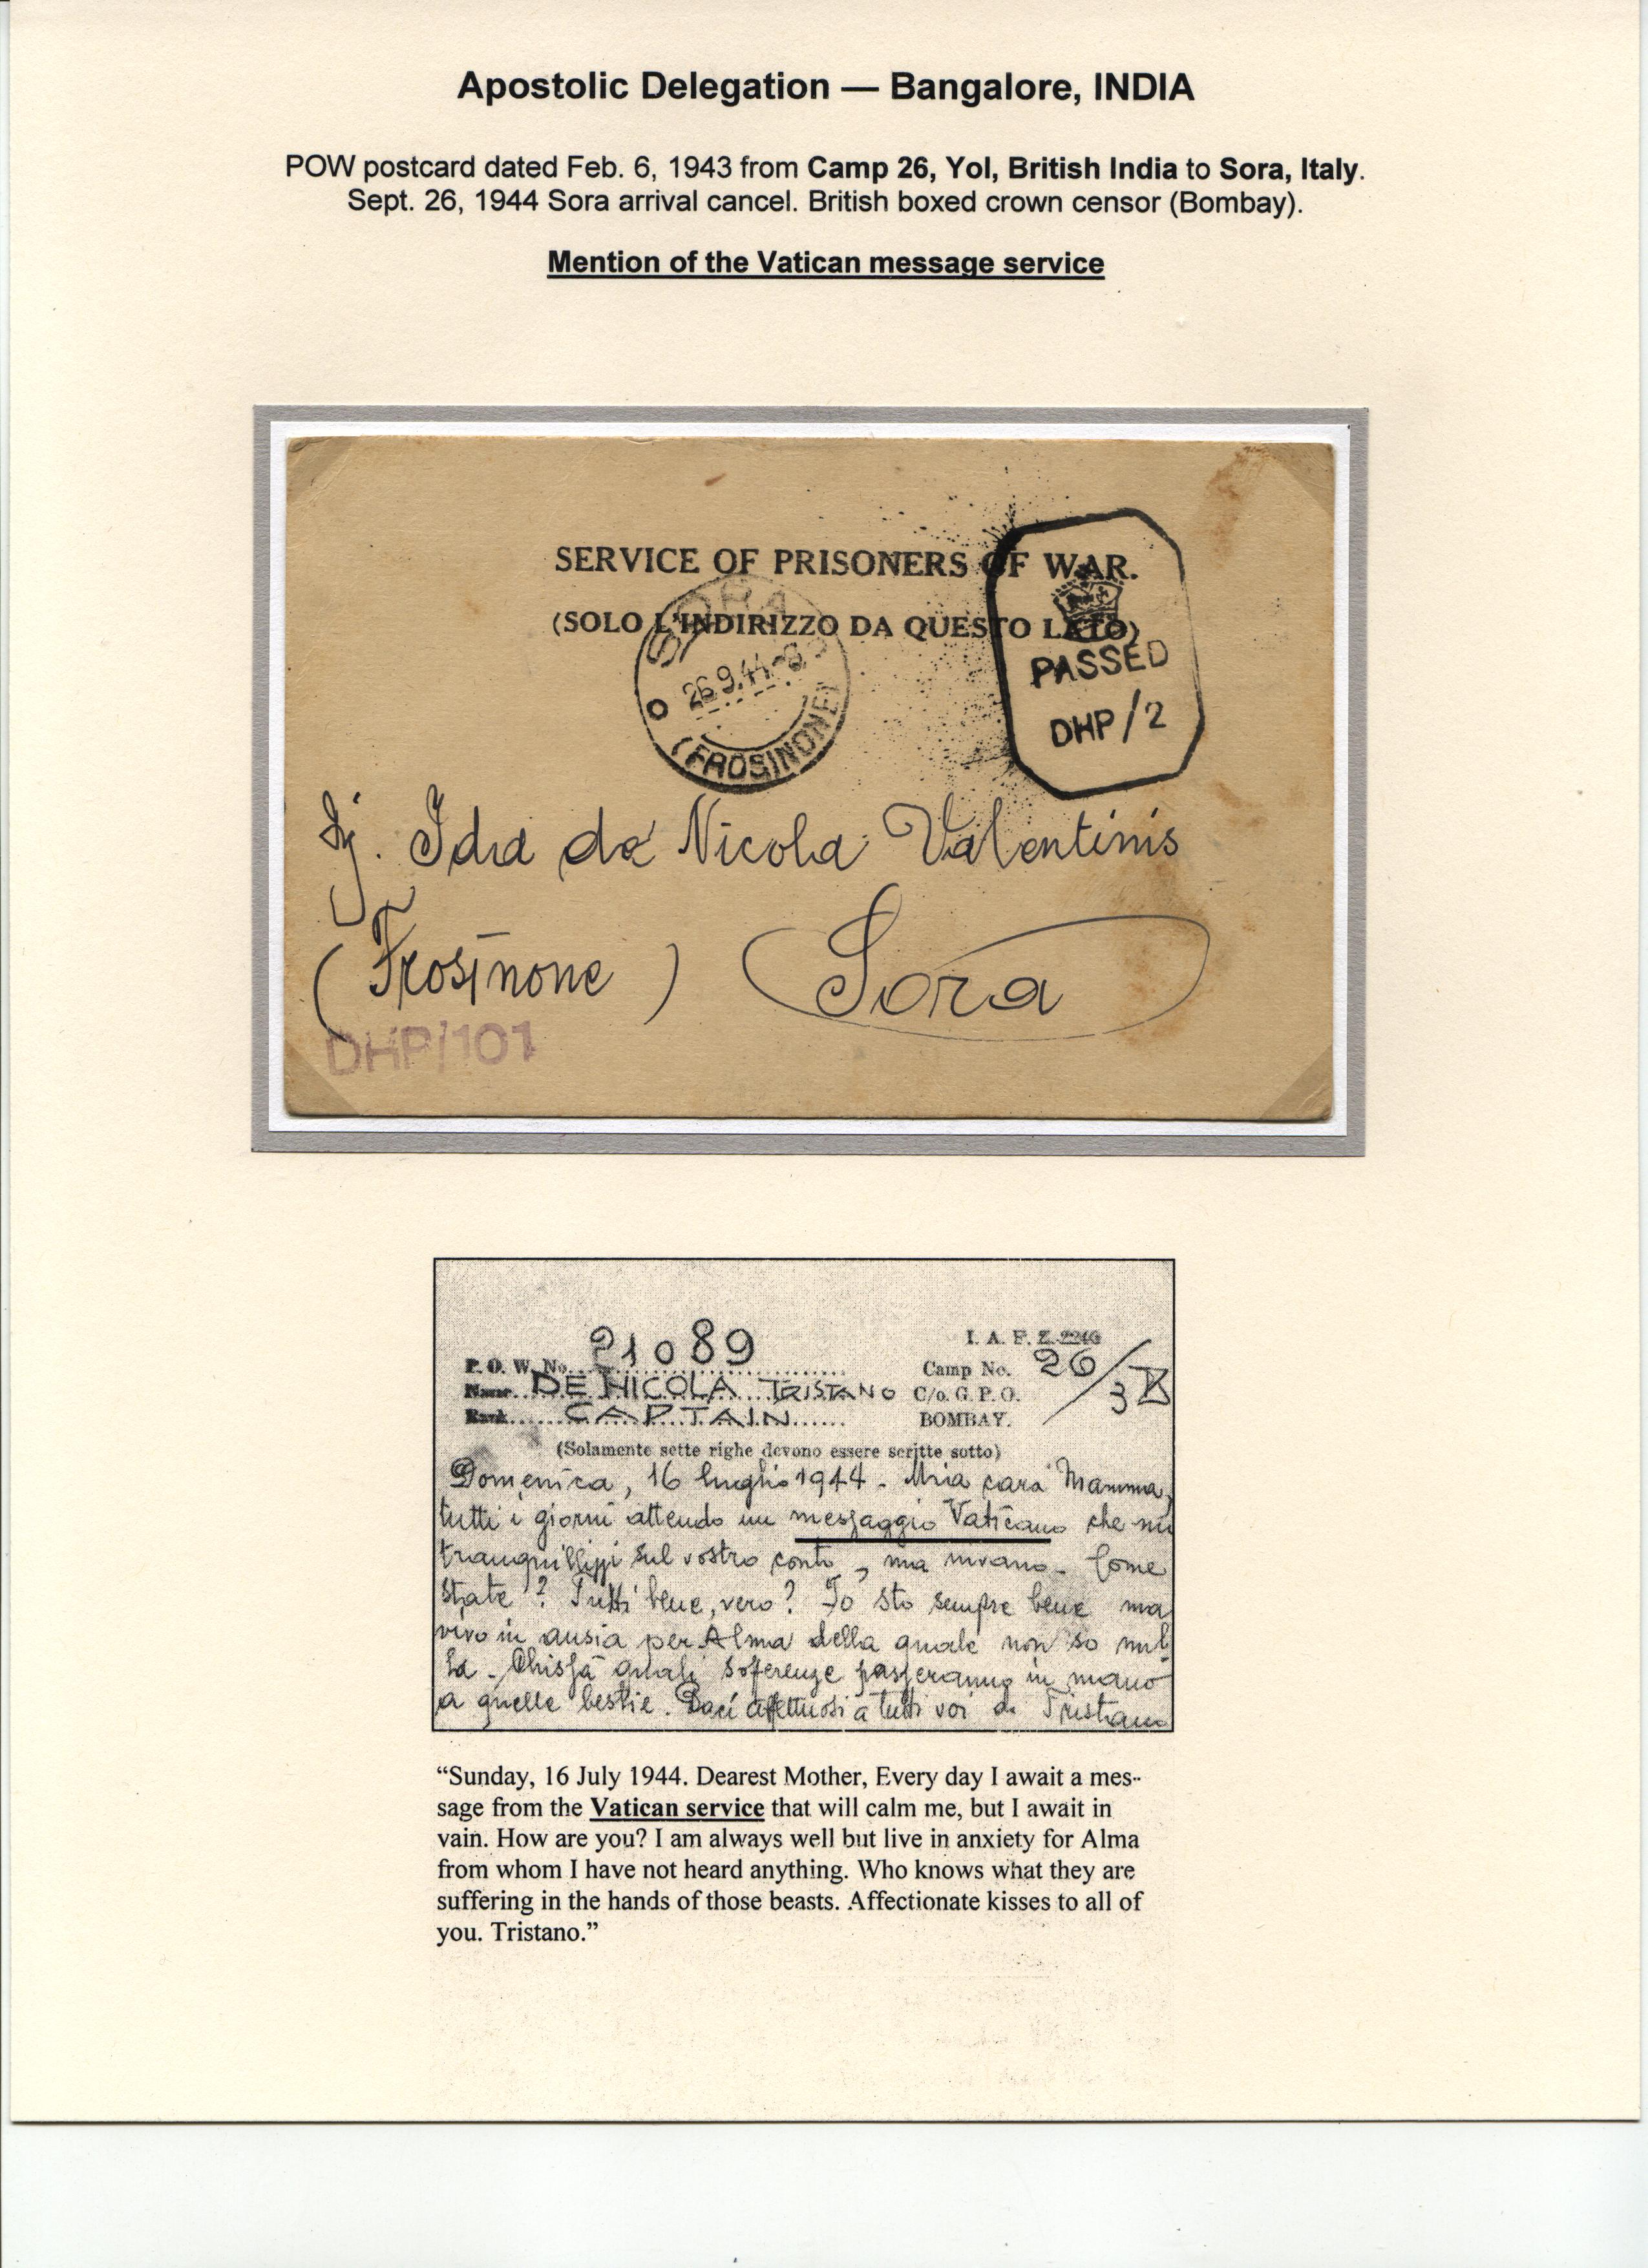 Apostolic Delegation — Bangalore, INDIA
POW postcard dated Feb. 6, 1943 from Camp 26, Yol, British India to Sora, Italy.
Sept. 26, 1944 Sora arrival cancel. British boxed crown censor (Bombay).
Mention of the Vatican message service
SERVICE OF PRISONERS OF WAR.
(SOLO L'INDIRIZZO DA QUESTO LATO)
SORA
26.9.44
(FROSINONE)
PASSED
DHP/2
Ida de Nicola Valentinis
(Frosinone) Sora
DHP/101
I. A. F. Z. 2246
P. O. W. No. 21089 Camp No. 26/3
Name DE NICOLA TRISTANO C/o. G. P. O.
Rank CAPTAIN BOMBAY.
(Solamente sette righe devono essere scritte sotto)
Domenica, 16 luglio 1944 - Mia cara Mamma,
tutti i giorni attendo un messaggio Vaticano che mi
tranquillizzi sul vostro conto, ma invano. Come
state? Tutti bene, vero? Io sto sempre bene ma
vivo in ansia per Alma della quale non so nul
la. Chissà quali soferenze passeranno in mano
a quelle bestie. Baci affettuosi a tutti voi da Tristano
“Sunday, 16 July 1944. Dearest Mother, Every day I await a mes-
sage from the Vatican service that will calm me, but I await in
vain. How are you? I am always well but live in anxiety for Alma
from whom I have not heard anything. Who knows what they are
suffering in the hands of those beasts. Affectionate kisses to all of
you. Tristano.”